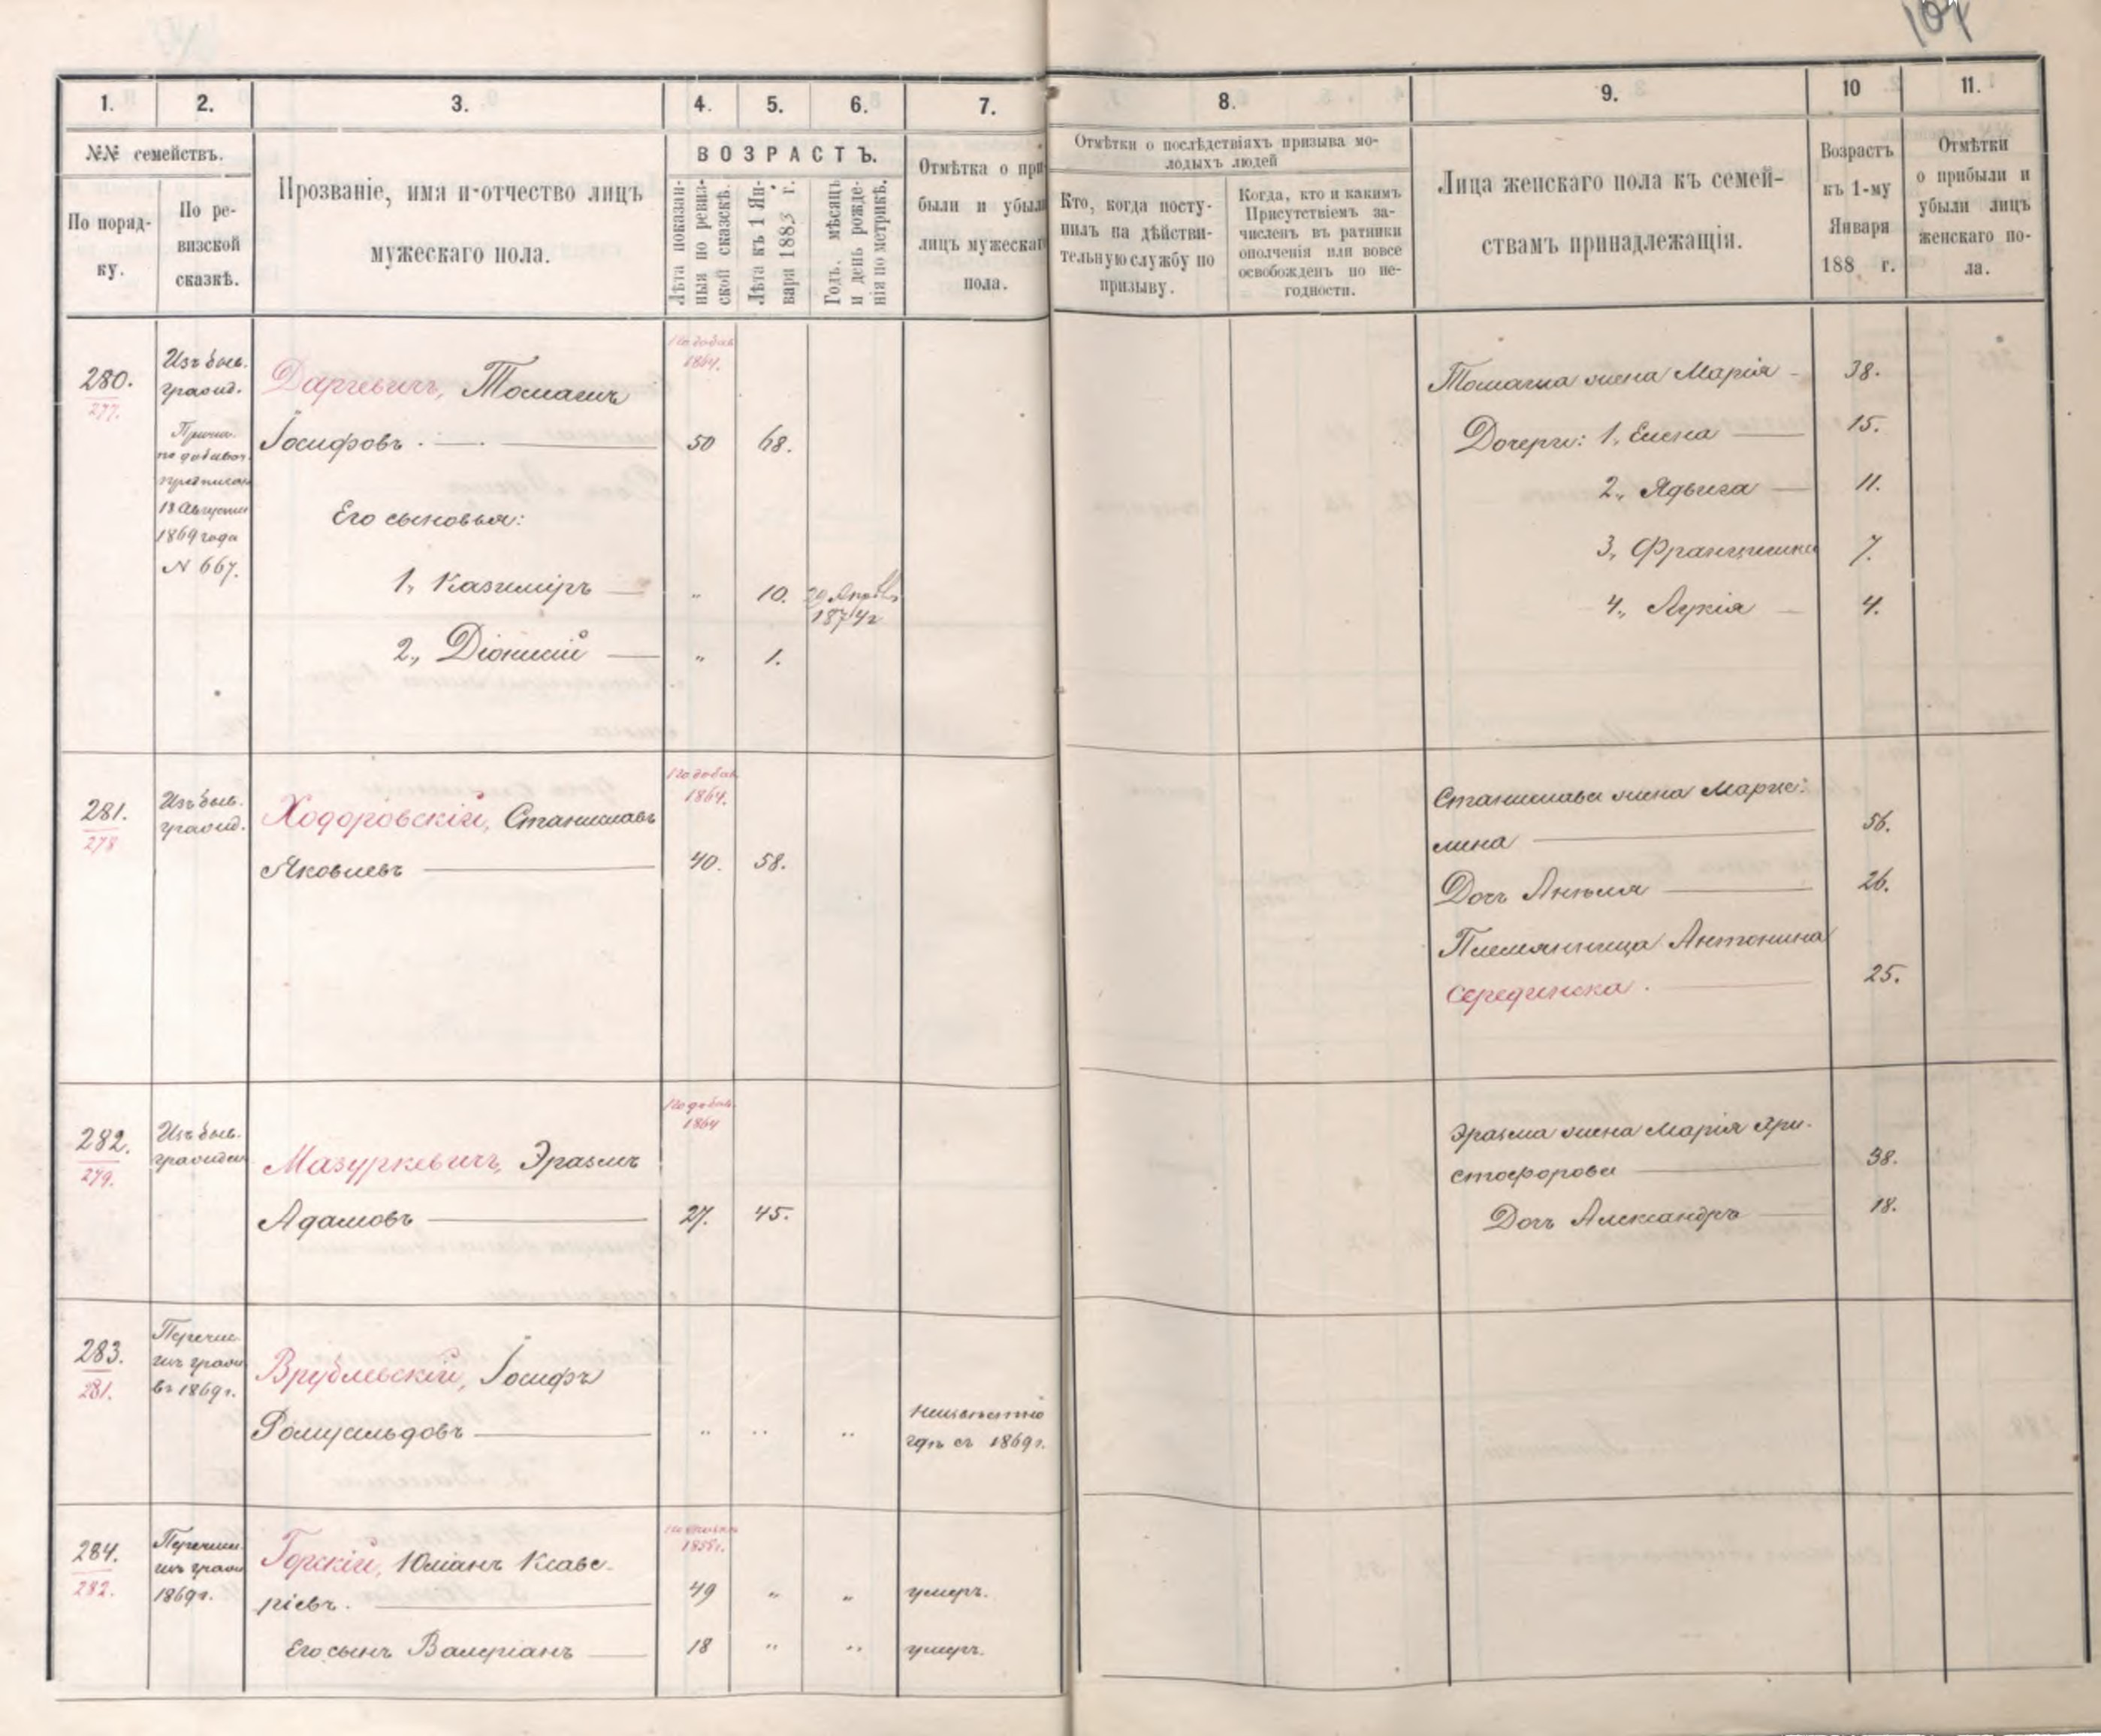 107
1.
2.
3.
4.
5.
6.
7.
8.
9.
10
11.
№№ семействъ.
По поряд-
ку.
По ре-
визской
сказкѣ.
Прозваніе, имя и отчество лицъ
мужескаго пола.
ВОЗРАСТЪ.
Лѣта показан-
ныя по ревиз-
ской сказкѣ.
Лѣта къ 1 Ян-
варя 1883 г.
Годъ, мѣсяцъ
и день рожде-
нія по метрикѣ.
Отмѣтка о при
были и убыли
лицъ мужескаго
пола.
Отмѣтки о послѣдствіяхъ призыва мо-
лодыхъ людей
Кто, когда посту-
пилъ на дѣйстви-
тельную службу по
призыву.
Когда, кто и какимъ
Присутствіемъ за-
численъ въ ратники
ополченія или вовсе
освобожденъ по не-
годности.
Лица женскаго пола къ семей-
ствамъ принадлежащія.
Возрастъ
къ 1-му
Января
188 г.
Отмѣтки
о прибыли и
убыли лицъ
женскаго по-
ла.
280.
277.
Изъ быв.
гражд.
18 Августа
1869 года
N 667.
Даргевичъ, Томашъ
Іосифовъ
По добав.
1864.
50
68.
Его сыновья:
1, Казиміръ
"
10.
29
1874 г
2, Діонисій
"
1.
Томаша жена Марія
38.
Дочери: 1, Елена
15.
2, Ядвига
11.
3, Францишка
7.
4, Лукія
4.
281.
278
Изъ быв.
гражд.
Ходоровскій, Станиславъ
Яковлевъ
По добав.
1864.
40.
58.
Станислава жена Марце-
лина
56.
Дочь Анѣля
26.
Племянница Антонина
Серединска.
25.
282.
279.
Изъ быв.
граждан
Мазуркевичъ, Эразмъ
Адамовъ
По добав.
1864
27.
45.
Эразма жена Марія Хри-
стофорова
38.
Дочь Александра
18.
283.
281.
Перечис.
изъ гражд
въ 1869 г.
Врублевскій, Іосифъ
Ромуальдовъ
"
"
"
неизвѣстно
гдѣ съ 1869 г.
284.
282.
Перечисл.
изъ гражд
1869 г.
Горскій, Юліанъ Ксаве-
ріевъ.
1858 г.
49
"
"
умеръ.
Его сынъ Валеріанъ
18
"
"
умеръ.